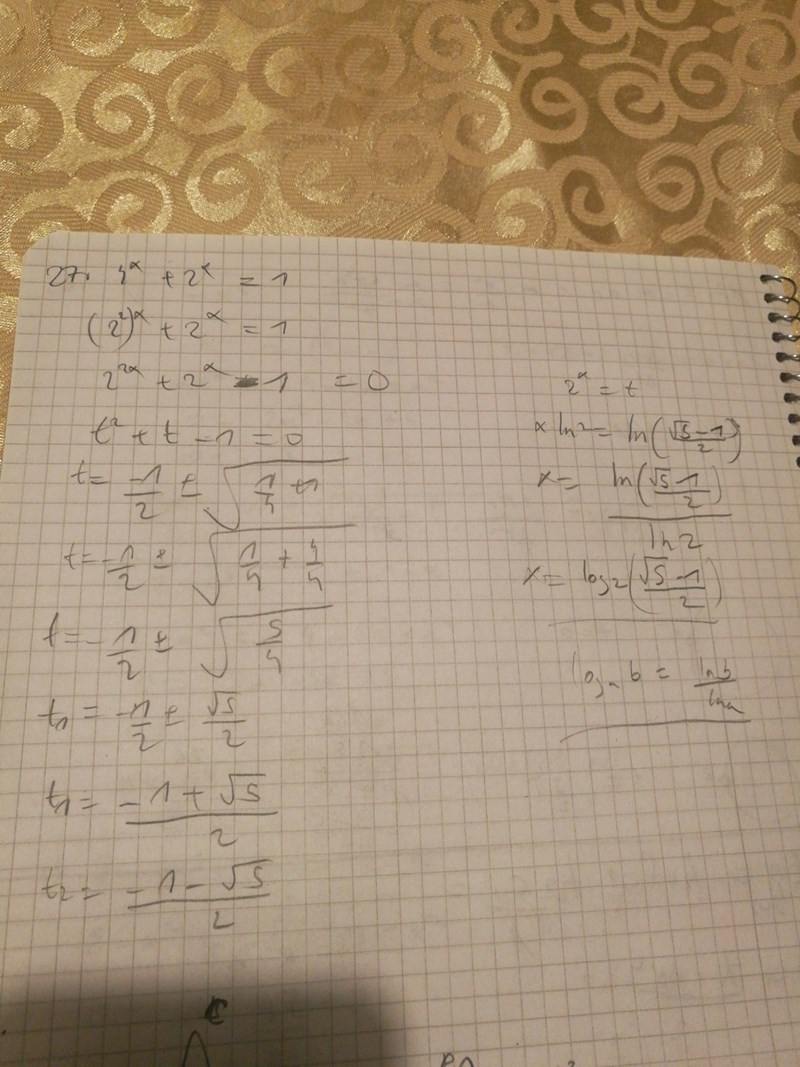 27. 4^x + 2^x = 1
(2^2)^x + 2^x = 1
2^2x + 2^x - 1 = 0
t^2 + t - 1 = 0
t = -1/2 ± √(1/4 + 1)
t = -1/2 ± √(1/4 + 4/4)
t = -1/2 ± √(5/4)
t1 = -1/2 ± √5/2
t1 = (-1 + √5)/2
t2 = (-1 - √5)/2
2^x = t
x ln2 = ln((√5 - 1)/2)
x = ln((√5 - 1)/2)/ln 2
x = log2((√5 - 1)/2)
log_a b = ln b/ln a